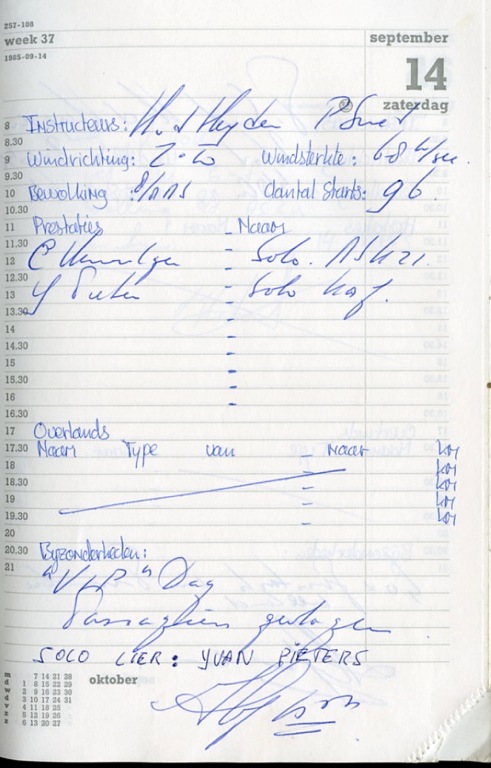 257-108
week 37 september
1985-09-14
14
zaterdag
8 Instructeurs: H. v d Heyden P Smet
8.30
9 Windrichting: Z-W Windsterkte: 68 m/sec.
9.30
10 Bewolking : 8/AAS Aantal Starts: 96.
10.30
11 Prestaties - Naam
11.30
12 C - Solo. ASK21.
12.30
13 Y - Solo
13.30
14
14.30
15
15.30
16
16.30
17 Overlands
17.30 Naam Type van - Naar KM
18 - KM
18.30 - KM
19 - KM
19.30 - KM
20
20.30 Byzonderheden:
21
"V.I.P" Dag
Passagiers gevlogen
SOLO LIER: YVAN PIETERS
oktober
m 7 14 21 28
d 1 8 15 22 29
w 2 9 16 23 30
d 3 10 17 24 31
v 4 11 18 25
z 5 12 19 26
z 6 13 20 27